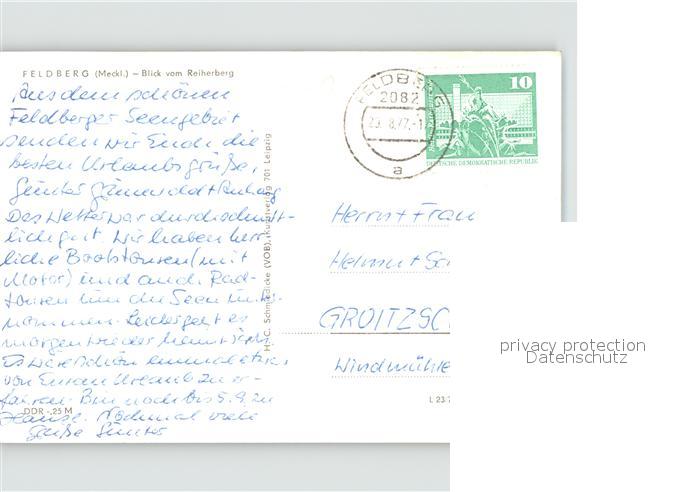 FELDBERG (Meckl.) – Blick vom Reiherberg
Aus dem schönen
Feldberger Seengebiet
senden wir Euch die
besten Urlaubsgrüße.
Günter + Anhang
Das Wetter war durchschnitt-
lich gut. Wir haben herr-
liche Bootstouren (mit
Motor) und auch Rad-
touren um die Seen unter-
nommen. Leider geht es
morgen wieder heimwärts.
Es wäre schön einmal etwas
von Eurem Urlaub zu er-
fahren. Bin noch bis 5.9. zu
Hause. Nochmal viele
Grüße Günter
DDR -,25 M
H.-C. Schmiedicke (VOB), Kunstverlag 701 Leipzig
FELDBERG
2082
a
10
DEUTSCHE DEMOKRATISCHE REPUBLIK
Herrn + Frau
Helmut
GROITZSC
Windmühle
L 23/
privacy protection
Datenschutz